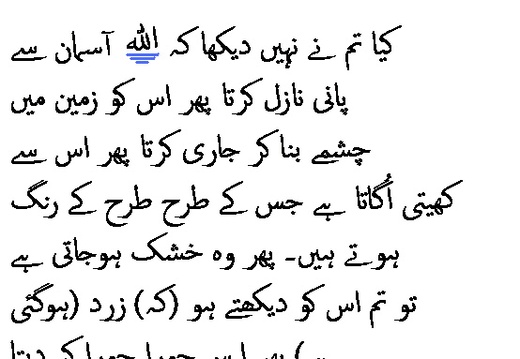 کیا تم نے نہیں دیکھا کہ الله آسمان سے
پانی نازل کرتا پھر اس کو زمین میں
چشمے بنا کر جاری کرتا پھر اس سے
کھیتی اُگاتا ہے جس کے طرح طرح کے رنگ
ہوتے ہیں۔ پھر وہ خشک ہوجاتی ہے
تو تم اس کو دیکھتے ہو (کہ) زرد (ہوگئی